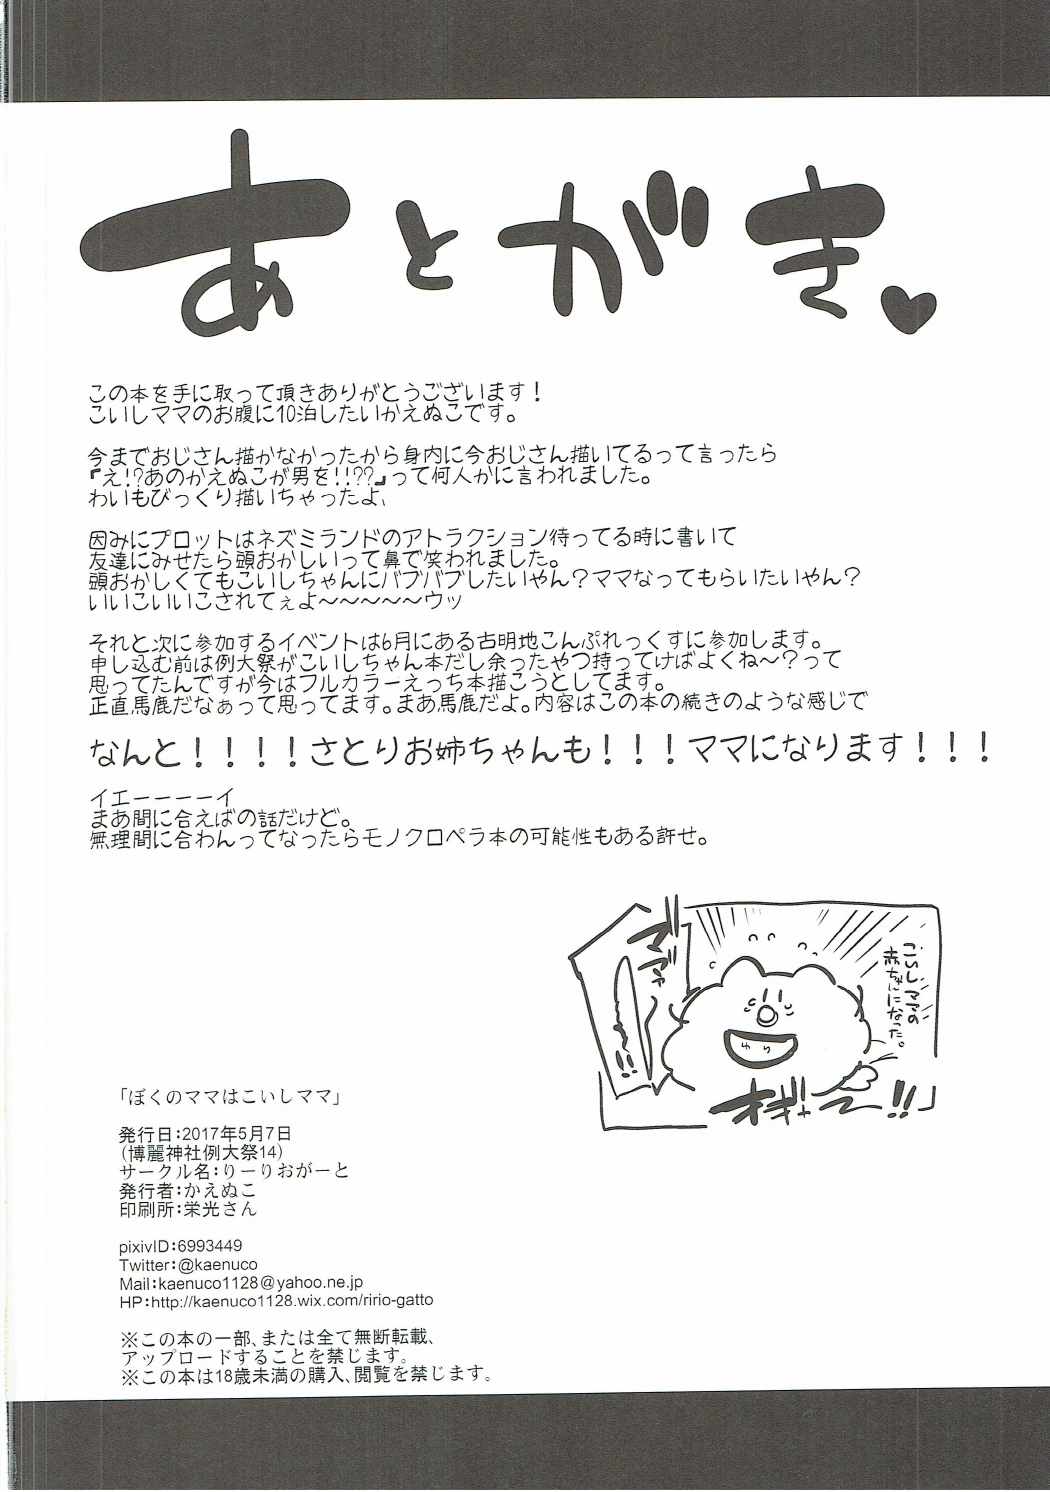 あとがき♥
この本を手に取って頂きありがとうございます!
こいしママのお腹に10泊したいかえぬこです。
今までおじさん描かなかったから身内に今おじさん描いてるって言ったら
『え!?あのかえぬこが男を!!??』って何人かに言われました。
わいもびっくり描いちゃったよ、
因みにプロットはネズミランドのアトラクション待ってる時に書いて
友達にみせたら頭おかしいって鼻で笑われました。
頭おかしくてもこいしちゃんにバブバブしたいやん?ママなってもらいたいやん?
いいこいいこされてぇよ~~~~~ウッ
それと次に参加するイベントは6月にある古明地こんぷれっくすに参加します。
申し込む前は例大祭がこいしちゃん本だし余ったやつ持ってけばよくね~?って
思ってたんですが今はフルカラーえっち本描こうとしてます。
正直馬鹿だなぁって思ってます。まあ馬鹿だよ。内容はこの本の続きのような感じで
なんと!!!!さとりお姉ちゃんも!!!ママになります!!!
イエーーーーイ
まあ間に合えばの話だけど。
無理間に合わんってなったらモノクロペラ本の可能性もある許せ。
こいしママの
赤ちゃんになった。
マ゛マ゛ァ
ー〜!!
ゆら
オギャー!!
「ぼくのママはこいしママ」
発行日:2017年5月7日
(博麗神社例大祭14)
サークル名:りーりおがーと
発行者:かえぬこ
印刷所:栄光さん
pixivID:6993449
Twitter:@kaenuco
Mail:kaenuco1128@yahoo.ne.jp
HP:http://kaenuco1128.wix.com/ririo-gatto
※この本の一部、または全て無断転載、
アップロードすることを禁じます。
※この本は18歳未満の購入、閲覧を禁じます。